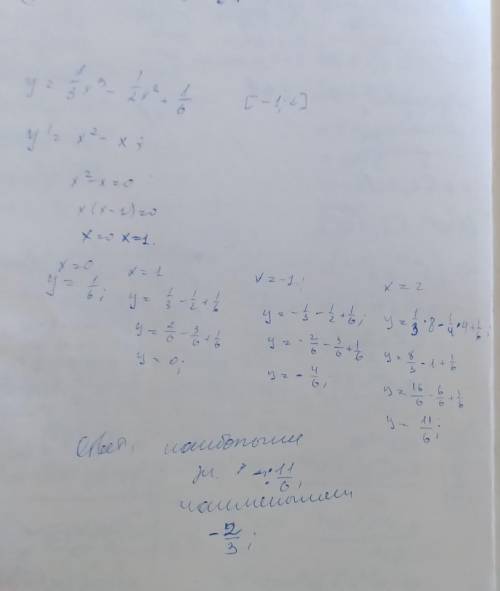 y = 1/3 x³ - 1/2 x² + 1/6 [-1; 2]
y' = x² - x;
x² - x = 0
x(x-1)=0
x=0 x=1.
x=0
y = 1/6;
x=1
y = 1/3 - 1/2 + 1/6
y = 2/6 - 3/6 + 1/6
y = 0;
x=-1;
y = -1/3 - 1/2 + 1/6;
y = -2/6 - 3/6 + 1/6
y = -4/6;
x = 2
y = 1/3 * 8 - 1/4 * 4 + 1/6;
y = 8/3 - 1 + 1/6
y = 16/6 - 6/6 + 1/6
y - 11/6;
Ответ, наибольшее
11/6;
наименьшее
-2/3;